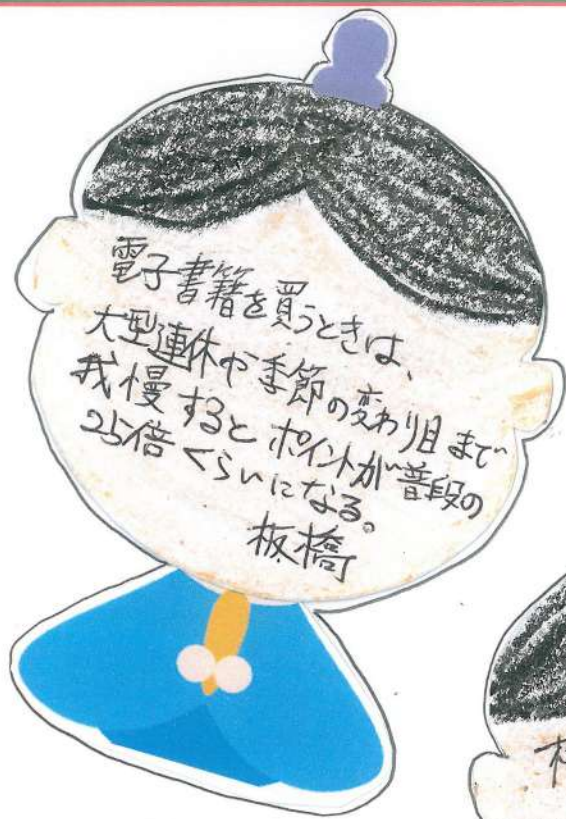 電子書籍を買うときは、
大型連休や季節の変わり目まで
我慢するとポイントが普段の
25倍くらいになる。
板橋